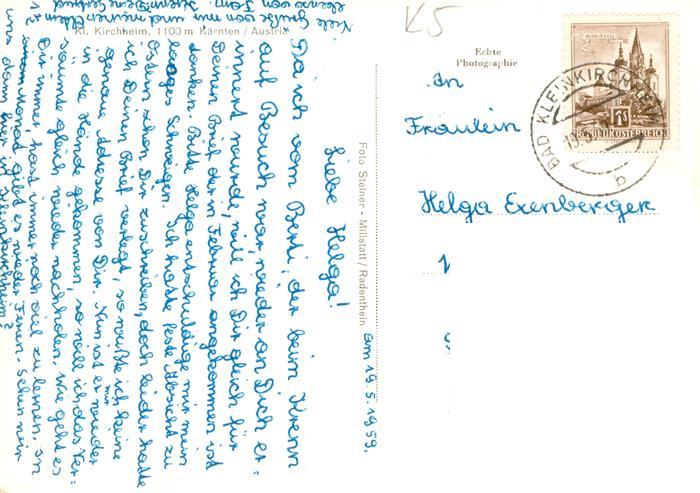 Kl. Kirchheim, 1100 m Kärnten / Austria
Liebe Helga!
Da ich vom Berti, der beim Krenn
auf Besuch war, wieder an Dich er-
innert wurde, will ich Dir gleich für
Deinen Brief der im Februar angekommen ist
danken. Bitte Helga entschuldige mir mein
langes Schweigen. Ich hatte feste Absicht zu
Ostern schon Dir zu schreiben, doch leider hatte
ich Deinen Brief verlegt, so wußte ich keine
genaue Adresse von Dir. Nun ist er mir wieder
in die Hände gekommen, so will ich das Ver-
säumte gleich wieder nachholen. Wie geht es
Dir immer, hast immer noch viel zu lernen. In
1½ Monat gibt es wieder Ferien. Sehen wir
uns dann hier in Kleinkirchheim?
Viele Grüße von mir und meinen Eltern
Deine Gertrud
Foto Steiner - Millstatt / Radenthein
am 19.5.1959.
K5
Echte
Photographie
An
Fräulein
Helga Exenberger
MARIAZELL
1S
REPUBLIK ÖSTERREICH
BAD KLEINKIRCHHEIM
b